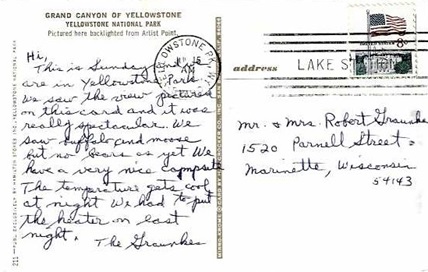 GRAND CANYON OF YELLOWSTONE
YELLOWSTONE NATIONAL PARK
Pictured here backlighted from Artist Point.
Hi,
This is Sunday and we
are in Yellowstone Park
We saw the view pictured
on this card and it was
really spectacular. We
saw buffalo and moose
but no bears as yet We
have a very nice campsite
The temperature gets cool
at night We had to put
the heater on last
night.
The Graunkes
YELLOWSTONE PK.
address
LAKE STATION
8c
Mr. & Mrs. Robert Graunke
1520 Parnell Street
Marinette, Wisconsin
54143